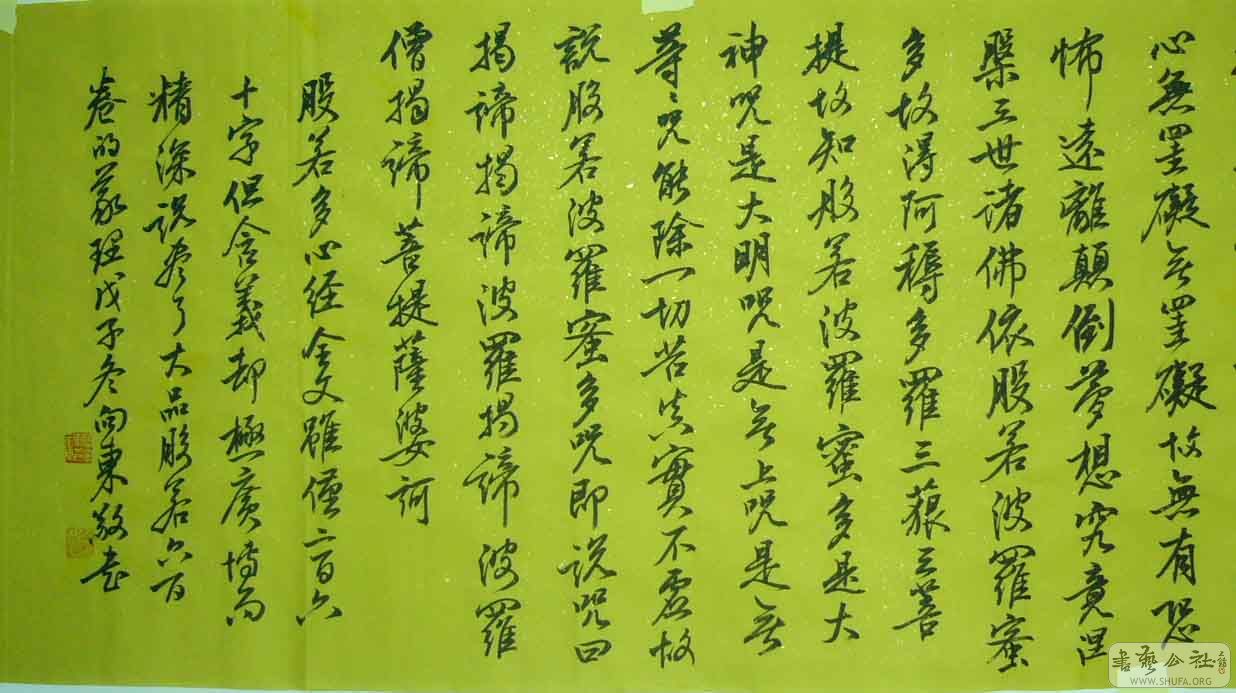 心無罣礙无罣礙故無有恐
怖遠離顛倒夢想究竟涅
槃三世诸佛依般若波羅蜜
多故得阿耨多羅三藐三菩
提故知般若波羅蜜多是大
神咒是大明咒是无上咒是无
等〻咒能除一切苦真實不虛故
說般若波羅蜜多咒即说咒曰
揭諦揭諦波羅揭諦波羅
僧揭諦菩提薩婆訶
般若多心经全文雖僅二百六
十字但含義却極廣博而
精深说尽了大品般若六百
卷的義理戊子冬向東敬书
書藝公社
WWW.SHUFA.ORG